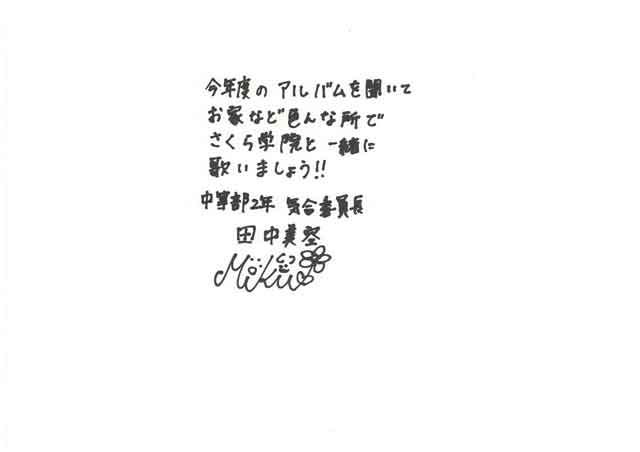 今年度の アルバムを聞いて
お家など色んな所で
さくら学院と 一緒に
歌いましょう!!
中等部2年 気合委員長
田中美空
Miku